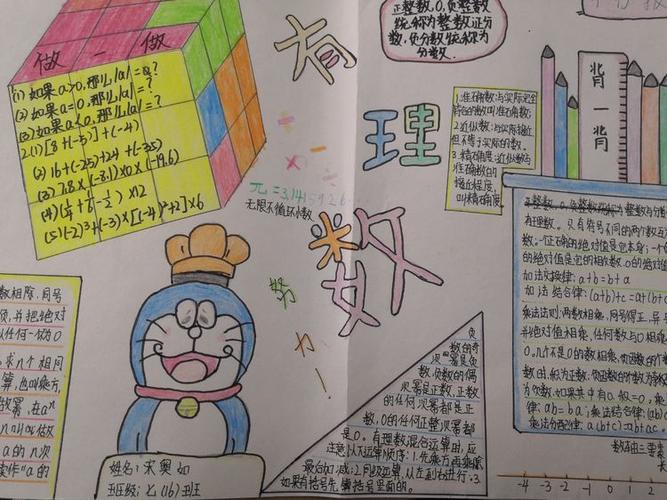 做一做
(1) 如果a>0,那么|a|=a?
(2) 如果a=0,那么|a|=?
(3) 如果a<0,那么|a|=?
2.(1) [8+(-5)]+(-4)
(2) 16+(-25)+24+(-35)
(3) 7.8×(-8.1)×0×(-19.6)
×12
(5) (-2)³+(-3)×[(-4)²+2]×6
有
理
数
正整数,0,负整数
统称为整数,正分
数,负分数统称为
分数.
1.准确数:与实际完全
符合的数叫准确数;
2.近似数:与实际接近
但不等于实际的数.
3.精确度:近似数与
准确数的
接近程度,
叫精确度
背一背
π=3.1415926
无限不循环小数
努力!
正整数,0,负整数统称为整数与分
有理数.只有符号不同的两个数互
数.一正确的绝对值是它本身;一
的绝对值是它的相反数.0的绝对值
加法交换律:a+b=b+a
加法结合律:(a+b)+c=a+(b+
乘法法则:两数相乘,同号得正,异号
并把绝对值相乘,任何数与0相乘
0,几个不是0的数相乘,负因数的个数
数由,积为正数;负因数的个数为奇数
为负数.如果其中有a,积=0.乘
律:ab=ba;乘法结合律:(ab)
乘法分配律:a(b+c)=ab+ac.
数轴三要素
-4 -3 -2 -1 0 1
数相除,同号
负,并把绝对
以任何一切为0
求n个相同
算,也叫乘方,
做幂,在aⁿ
n叫做
a的n次
读作"a的
姓名:宋奥如
班级:七(16)班
负
数的奇
次幂是负
数,负数的偶
次幂是正数,正数
的任何次幂都是正
数,0的任何正整次幂都
是0.有理数混合运算中,应
注意以下运算顺序:1.先乘方,再乘除,
最后加减;2.同级运算,从左到右进行;3.
如果有括号,先算括号里面的.